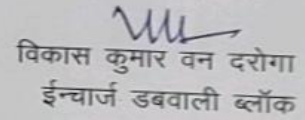 विकास कुमार वन दरोगा
ईन्चार्ज डबवाली ब्लॉक